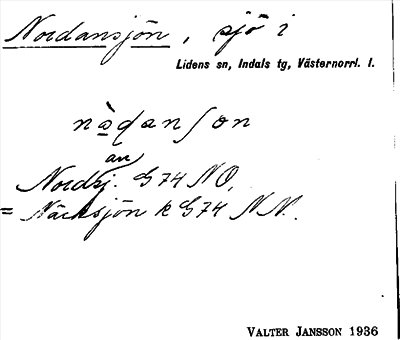 Nordansjön, sjö i
Lidens sn, Indals tg, Västernorrl. l.
nàdanʃon
an
Nordsj. G74 NO,
= Näcksjön k G74 NV.
VALTER JANSSON 1936